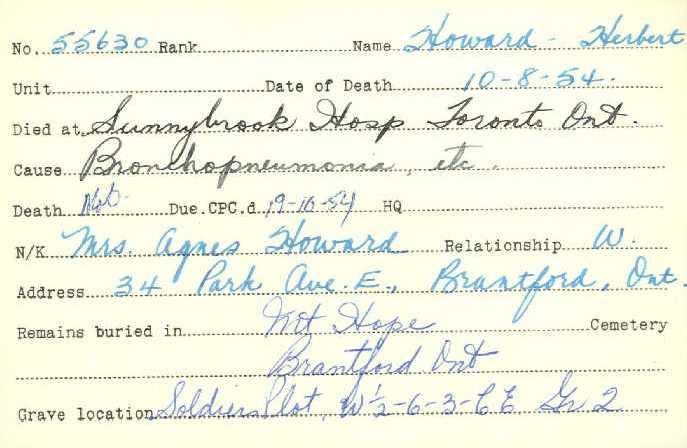 No. 55630 Rank Name Howard - Herbert
Unit Date of Death 10-8-54.
Died at Sunnybrook Hosp Toronto Ont.
Cause Bronchopneumonia, etc.
Death Not Due.CPC.d. 19-10-54 HQ
N/K Mrs. Agnes Howard Relationship W.
Address 34 Park Ave. E., Brantford, Ont.
Remains buried in Mt Hope Cemetery
Brantford Ont
Grave location Soldiers Plot, W½-6-3-CE Gr 2